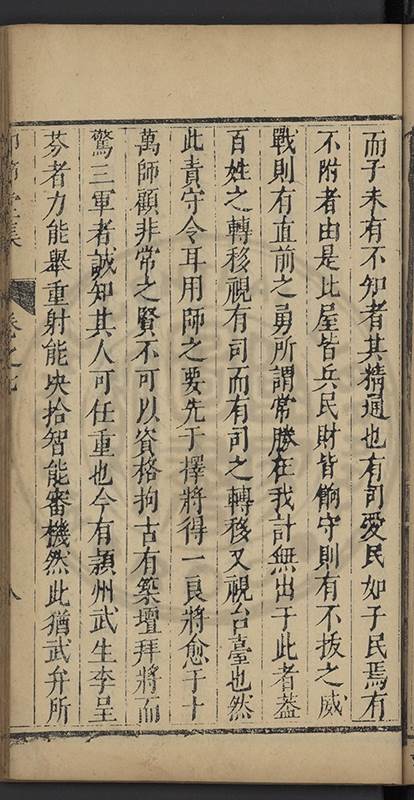 而子未有不知者其精通也有司愛民如子民焉有
不附者由是比屋皆兵民財皆餉守則有不拔之威
戰則有直前之勇所謂常勝在我計無出于此者蓋
百姓之轉移視有司而有司之轉移又視台臺也然
此責守令耳用師之要先于擇將得一良將愈于十
萬師顧非常之賢不可以資格拘古有築壇拜將而
驚三軍者誠知其人可任重也今有潁州武生李呈
芬者力能舉重射能决拾智能審機然此猶武弁所
集 卷之七 八